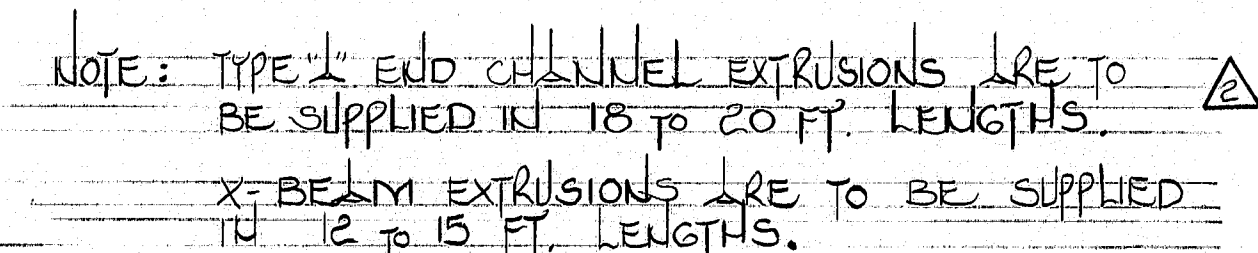 NOTE: TYPE "A" END CHANNEL EXTRUSIONS ARE TO
BE SUPPLIED IN 18 TO 20 FT. LENGTHS.
2
X-BEAM EXTRUSIONS ARE TO BE SUPPLIED
IN 12 TO 15 FT. LENGTHS.